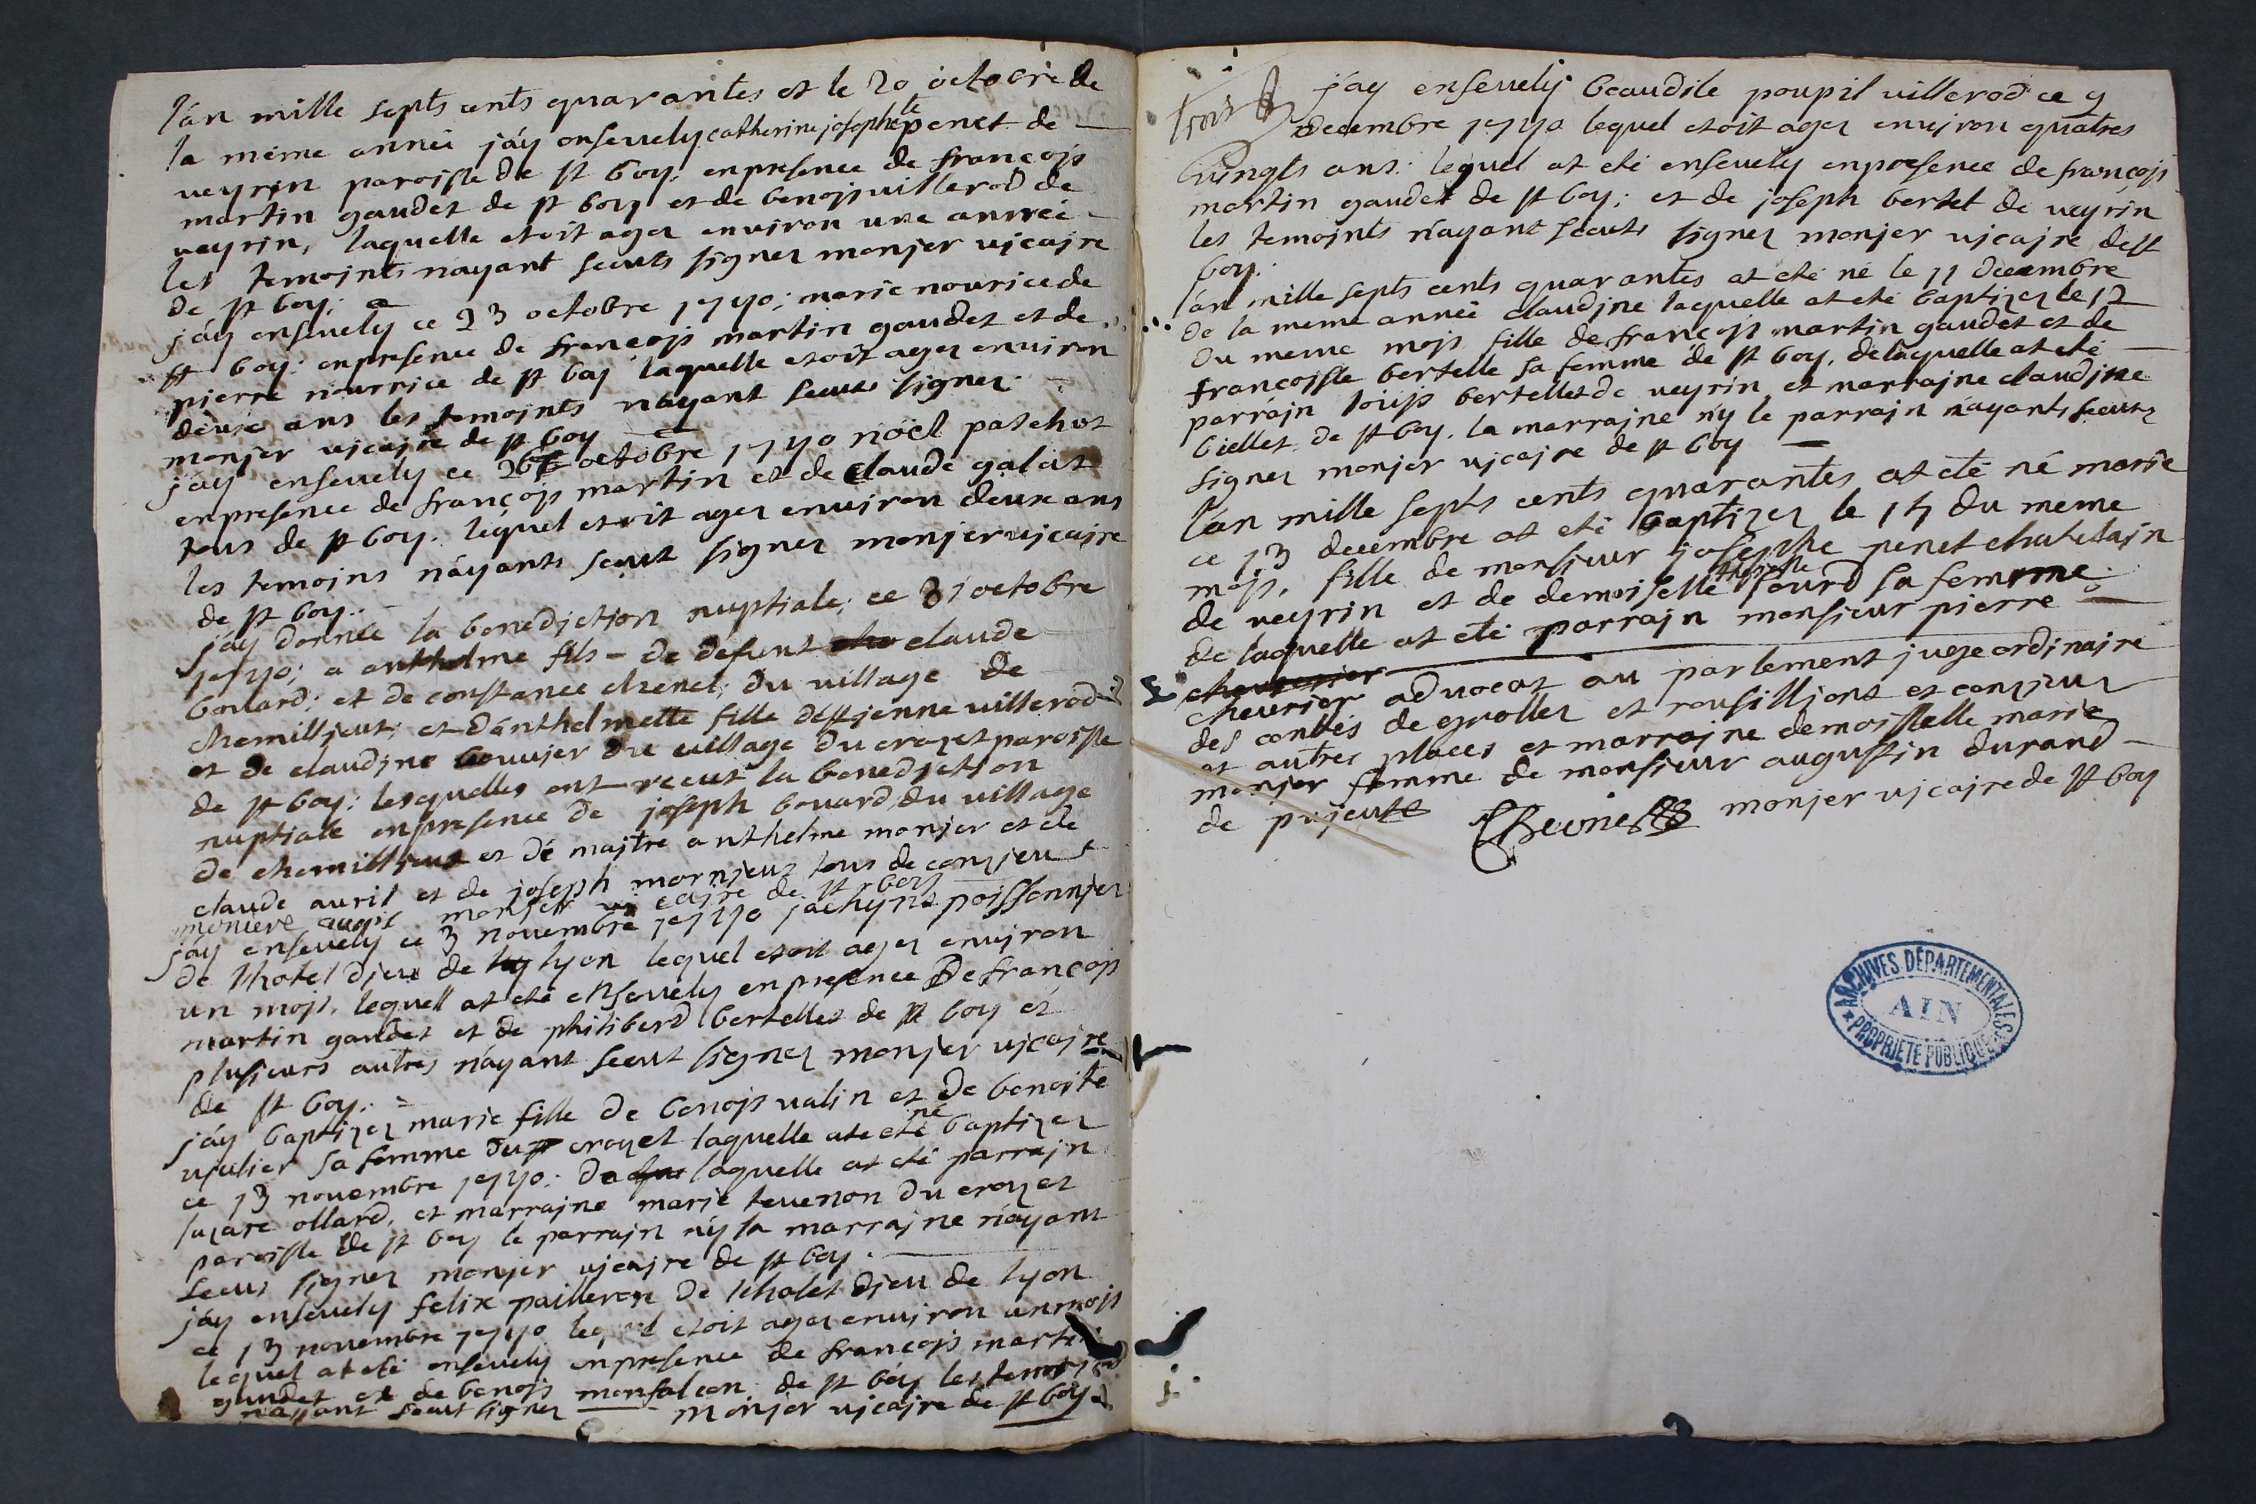 l'án mille septs cents quarantes et le 20 octobre de
la méme anneé jáy ensevely catherine josephte penet de
veyrin paroisse de st boy; en presence de françojs
martin gaudet de st boy et de benojs villerod de
veyrin, laquelle etoit agez environ une anneé
les temoints nayant sceuts signez monjer vjcajre
de st boy;
jáy ensevely ce 23 octobre 1740; marie nourice de
st boy; en presence de françojs martin gaudet et de
pierre nourrice de st boj laquelle etoit agez environ
deux ans les temoints nayant sceuts signez
monjer vjcajre de st boy
jáy ensevely ce 26 octobre 1740 nöel patehot
en presence de françojs martin et de claude galat
tous de st boy. lequel etoit agez environ deux ans
les temoins náyants sceut signez monjer vjcajre
de st boy..
jáy donneé la benedjction nuptiale; ce 31 octobre
1740; a anthelme fils de defunt claude
bovard; et de constance chenel; du village de
chemilljeut; et dánthelmette fille d'estjenne villerod
et de claudjne bouvjer du village du crozet paroisse
de st boy; lesquelles ont receut la benedjction
nuptiale en presence de joseph bovard du village
de chemilljeut et dé majtre anthelme monjer et de
claude avril et de joseph mornjeuz tous de conzjeu
moniere avril monjer vicajre de st boy
jáy ensevely ce 3 novembre 1740 jachyns poissonnjer
de lhotel djeu de lyon lequel etoit agez environ
un mojs, lequell at eté ensevely en presence de françojs
martin gaudet et de philiberd bertellet de st boy et
plusjeurs autres nayant sceut signez monjer vjcajre
de st boy.
jáy baptizez marie fille de benojs valin et de benoite
vjulier sa femme du crozet laquelle at eté né baptizez
ce 13 novembre 1740; de laquelle at eté parrajn
lazare ollard, et marrajne marje tevenon du crozet
paroisse de st boy le parrajn ny la marrajne náyant
sceut signez monjer vjcajre de st boy.
jáy ensevely felix pailleron de lhotel djeu de lyon
ce 13 novembre 1740 lequel etoit agez environ un mojs
lequel at eté ensevely en presence de françojs martin
gaudet et de benojs monfalcon de st boy les temoins
nayant sceut signez monjer vjcajre de st boy
jáy ensevely beaudile poupil villerod ce 9
decembre 1740 lequel etoit agez envjron quatres
vingts ans; lequel at eté ensevely en presence de françojs
martin gaudet de st boy; et de joseph bertet de veyrin
les temoints náyant sceuts signez monjer vjcajre de st
boy.
l'án mille septs cents quarantes at eté né le 11 decembre
de la meme anneé claudjne laquelle at eté baptizez le 12
du meme mojs fille de françojs martin gaudet et de
françoisse bertelle sa femme de st boy, de laquelle at eté
parrájn loujs bertellet de veyrin et marrajne claudjne
biellet de st boy. la marrajne ny le parrajn náyants sceuts
signez monjer vjcajre de st boy
l'án mille septs cents quarantes at eté né marie
ce 13 decembre at eté baptizez le 14 du meme
mojs, fille de monsieur josephe penet chatelajn
de veyrin et de demoiselle sourd sa femme.
de laquelle at eté parrajn monsieur pierre
chevrier advocat au parlement juge ordjnaire
des contés de grollez et rousilljont et conzjeuz
et autres places et marrajne demoisselle marie
monjer femme de monsieur augustin durand
de pujeut Chevrier monjer vjcajre de st boy
ARCHIVES DÉPARTEMENTALES
AIN
PROPRIÉTÉ PUBLIQUE